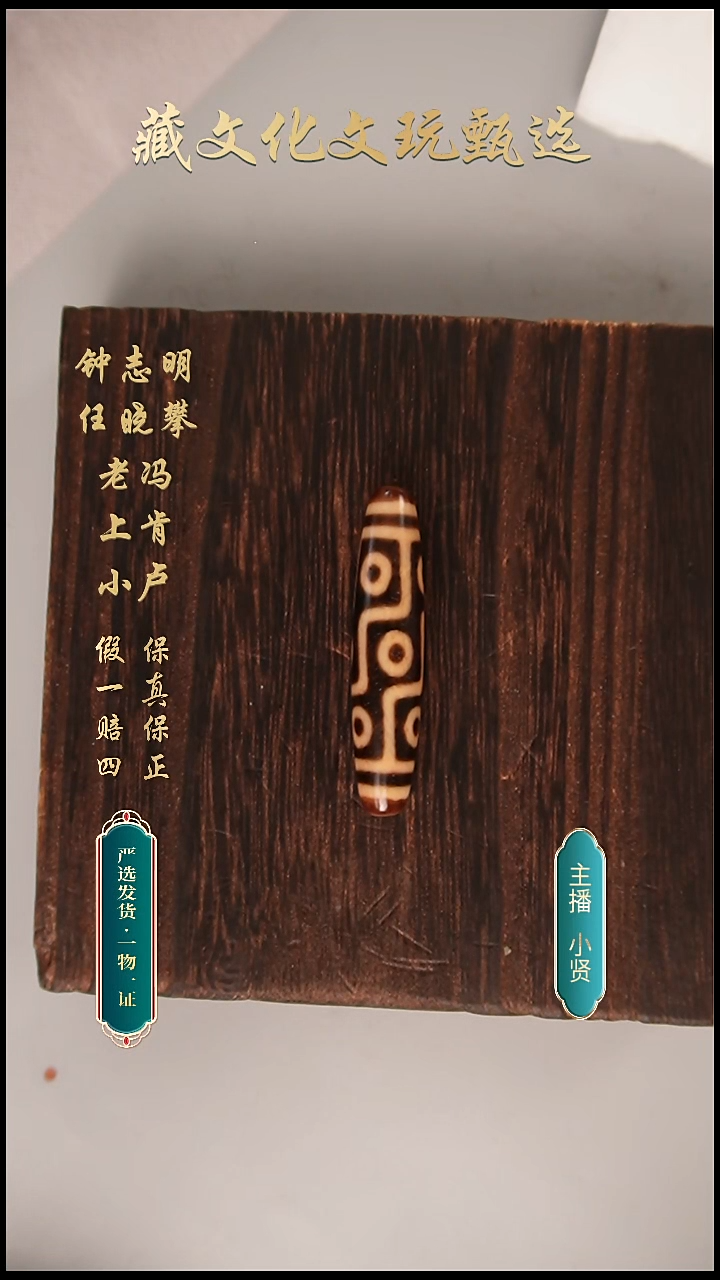 藏文化文玩甄选
钟志明
任晓攀
老冯
上肯
小卢
保真保正
假一赔四
严选发货·一物一证
主播 小贤